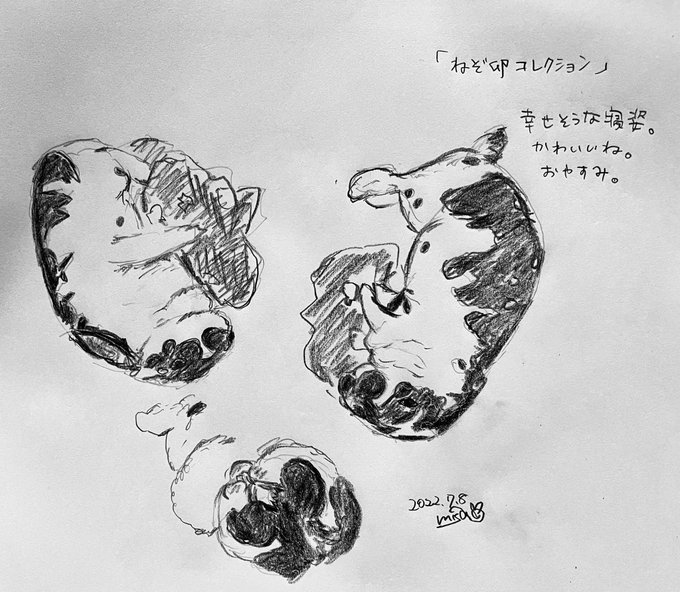 「ねぞ卵コレクション」
幸せそうな寝姿。
かわいいね。
おやすみ。
2022.7.8
misa